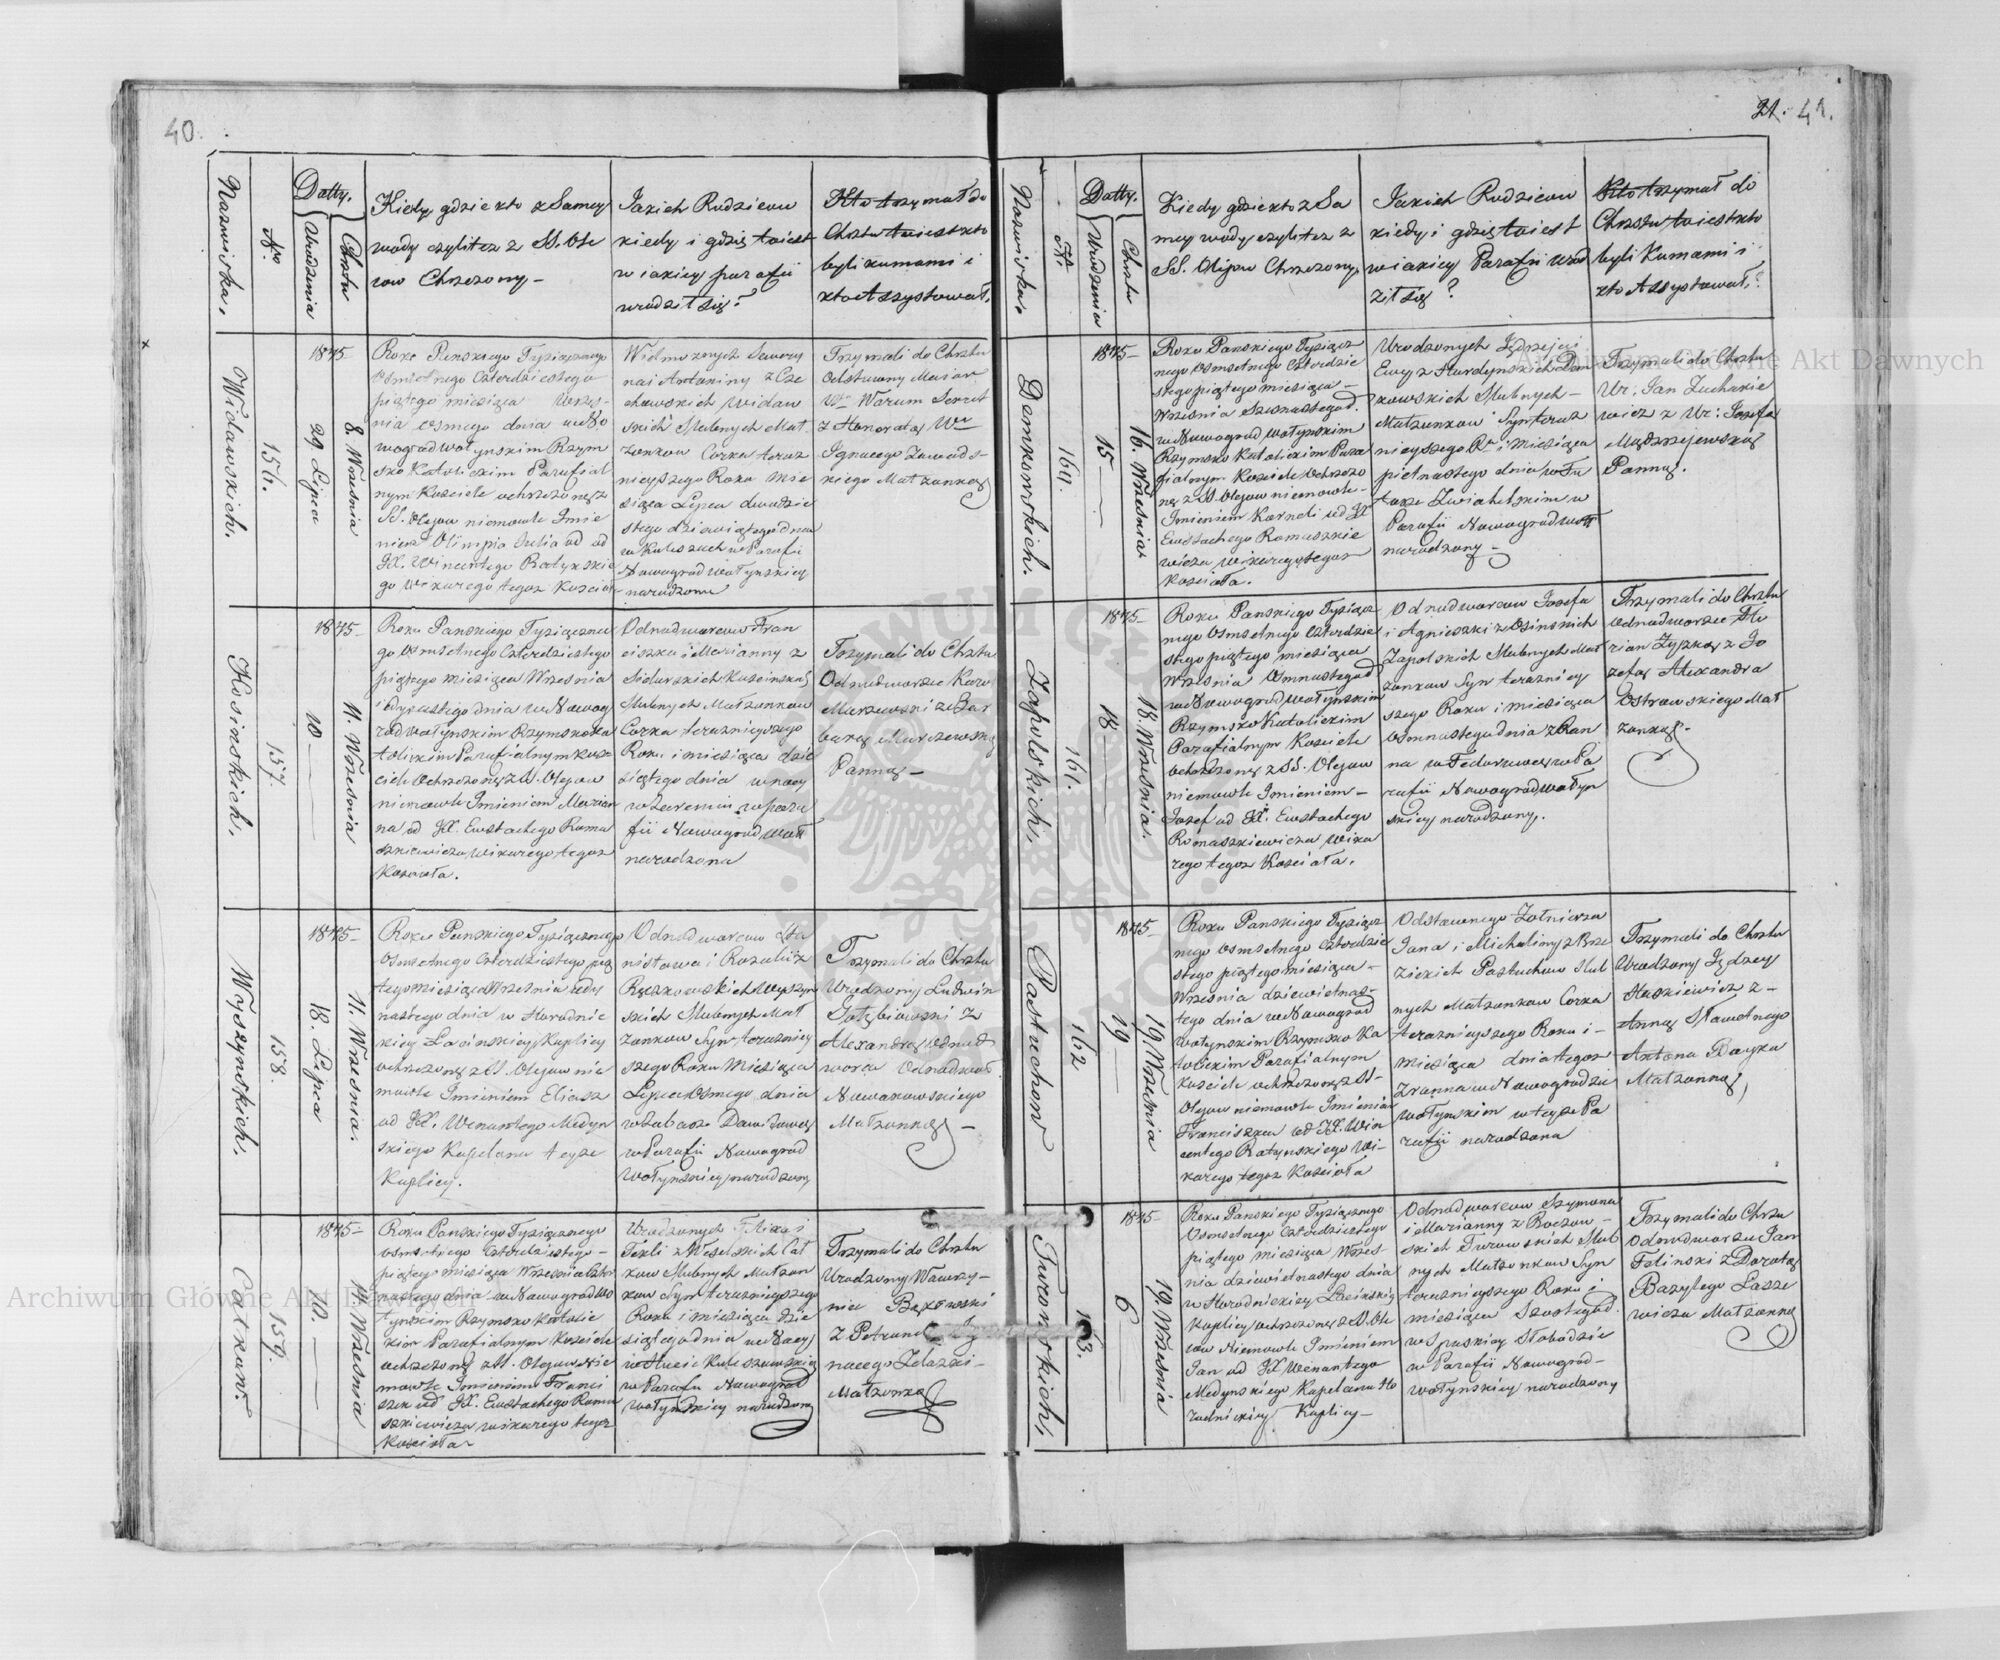 40.
Nazwiska.
Nro
Datty.
Urodzenia
Chrztu
Kiedy gdzie kto z Samey
wody czyli tez z SS. Ole
iow Chrzczony –
Jakich Rodzicow
kiedy i gdzie toiest
w iakiey parafii
urodził się?
Kto trzymał do
Chrztu toiest kto
byli kumami i
kto Assystował.
Widawskich.
156.
1845
29 Lipca
8. Września
Roku Panskiego Tysiącznego
Osmsetnego Czterdziestego
piątego miesiąca Wrzes-
nia osmego dnia w No
wogradwołynskim Rzym
sko Katolickim Parafial
nym Kościele ochrzczony z
SS. Olejow niemowle Imie
niem Olimpia Julia od
JX. Wincentego Ratynskie
go Wikarego tegoż Kościoła
Wielmożnych Sewery
na i Antoniny z Cze
chowskich Widaw
skich Slubnych Mał
żonkow Corka teraz
nieyszego Roku Mie
siąca Lipca dwudzie
stego dziewiątego dnia
w Kuleszach w Parafii
Nowogradwołynskiey
narodzona
Trzymali do Chrztu
Odstawny Maior
z Honoratą Wo
Ignacego Zawads-
kiego Małżonką
Kosinskich.
157.
1845
10
11. Września
Roku Panskiego Tysiączne
go Osmsetnego Czterdziestego
piątego miesiąca Września
iedynastego dnia w Nowog
radwołynskim Rzymskoka
tolickim Parafialnym Kos
ciele Ochrzczony z SS. Olejow
niemowle Imieniem Marian
na od JX. Eustachego Roma
szkiewicza Wikarego tegoz
Kościoła.
Odnodworcow Fran
ciszka i Marianny z
Sidorskich Kosinskich
Slubnych Małżonkow
Corka teraznieyszego
Roku i miesiąca dzie
siątego dnia w nocy
w Jaremiu w para
fii Nowogradwoł
narodzona
Trzymali do Chrztu
Odnodworzec Karol
Murzewski z Bar
barą Murzewską
Panną –
Wyszynskich.
158.
1845
18. Lipca
11. Września.
Roku Panskiego Tysiącznego
Osmsetnego Czterdziestego pią
tego miesiąca Września iedy
nastego dnia w Horodnic
kiey Łacinskiey Kaplicy
ochrzczony z SS. Olejow nie
mowle Imieniem Eliasz
od JX. Wenantego Medyn
skiego Kapelana teyze
Kaplicy.
Odnodworcow Sta
nisława i Rozalii z
Ręczkowskich Wyszyn
skich Slubnych Mał
żonkow Syn terazniey
szego Roku Miesiąca
Lipca Osmego dnia
w Parafii Nowograd
wołynskiey narodzony
Trzymali do Chrztu
Urodzony Ludwik
Gołębiowski z
Alexandrą Odnod
worca
Nowakowskiego
Małżonką –
Całkow.
159.
1845
10.
14. Września
Roku Panskiego Tysiącznego
osmsetnego Czterdziestego –
piątego miesiąca Września Czter
nastego dnia w Nowogradwo
łynskim Rzymsko Katolic
kim Parafialnym Kościele
ochrzczony z SS. Olejow Nie
mowle Imieniem Franci
szek od JX. Eustachego Roma
szkiewicza wikarego tegoz
Kościoła
Urodzonych Felixa i
Tekli z Weselskich Cał
kow Slubnych Małżon
kow Syn teraznieyszego
Roku i miesiąca dzie
siątego dnia w Nocy
w Hucie Kuleszowskiey
w Parafii Nowograd
wołynskiey narodzony
Trzymali do Chrztu
Urodzony Wawrzy-
niec Bąkowski
z Petronelą Ig
nacego Żelazki –
Małżonką
21. 41.
Nazwiska.
Nr.
Datty.
Urodzenia
Chrztu
Kiedy gdzie kto z Sa
mey wody czyli tez z
SS. Olejow Chrzczony.
Jakich Rodzicow
kiedy i gdzie toiest
w iakiey Parafii urod
ził się?
Kto trzymał do
Chrztu toiest kto
byli Kumami i
kto Assystował?
Demkowskich.
1845
15
16. Września
Roku Panskiego Tysiącz
nego Osmsetnego Czterdzie
stego piątego miesiąca –
Września Szesnastego d.
w Nowogradwołynskim
Rzymsko Katolickim Para
fialnym Kościele Ochrzczo
ny z SS. Olejow niemowle –
Imieniem Korneli od JX
Eustachego Romaszkie
wicza wikarego tegoz
Kościoła.
Urodzonych Jędrzeja i
Ewy z Hurdynskich Dem
kowskich Slubnych –
Małżonkow Syn teraz
nieyszego Ru i Miesiąca
piętnastego dnia w Fu
torze Zwiahelskim w
Parafii Nowogradwoł
narodzony –
Trzymali do Chrztu
Ur. Jan Zacharkie
wicz z Ur: Jozefą
Mędrzejewską
Panną.
Zapolskich.
161.
1845
18
18. Września.
Roku Panskiego Tysiącz
nego Osmsetnego Czterdzie
stego piątego miesiąca
Września Osmnastego d
w Nowogradwołynskim
Rzymsko Katolickim
Parafialnym Kościele
Ochrzczony z SS. Olejow
niemowle Imieniem –
Jozef od JX. Eustachego
Romaszkiewicza Wika
rego tegoz Kościoła.
Odnodworcow Jozefa
i Agnieszki z Osinskich
Zapolskich Slubnych Mał
żonkow Syn terazniey
szego Roku i miesiąca
Osmnastego dnia z Ran
na w Fedorowce w Pa
rafii Nowogradwołyn
skiey narodzony.
Trzymali do Chrztu
Odnodworzec Flo
rian Zyskow z Jo
zefą Alexandra
Ostrowskiego Mał
żonką –
Pastuchow
162
1845
19
19. Września
Roku Panskiego Tysiącz
nego Osmsetnego Czterdzie
stego piątego miesiąca –
Września dziewietnas-
tego dnia w Nowograd
wołynskim Rzymsko Ka
tolickim Parafialnym
Kościele ochrzczony z SS –
Olejow niemowle Imieniem
Franciszka od JX. Win
centego Ratynskiego Wi-
karego tegoz Kościoła
Odstawnego Żołnierza
Jana i Michaliny z Brze
zickich Pastuchow Slub
nych Małżonkow Corka
teraznieyszego Roku i –
miesiąca dnia tegoz
z ranna w Nowogradzie
wołynskim w teyze Pa
rafii narodzona
Trzymali do Chrztu
Urodzony Jędrzey
Haskiewicz z –
Anną Sławetnego
Antona Bayka
Małżonką,
Turowskich.
163.
1845
6
19. Września
Roku Panskiego Tysiącznego
Osmsetnego Czterdziestego
piątego miesiąca Wrześ-
nia dziewietnastego dnia
w Horodnickiey Łacinskiey
Kaplicy ochrzczony z SS. Ole
iow Niemowle Imieniem
Jan od JX Wenantego
Medynskiego Kapelana Ho
rodnickiey Kaplicy –
Odnodworcow Szymona
i Marianny z Roczow –
skich Turowskich Slub
nych Małżonkow Syn
teraznieyszego Roku i
miesiąca Szostego d.
w Parafii Nowograd –
wołynskiey narodzony
Trzymali do Chrztu
Odnodworzec Jan
Felinski z Dorotą
Bazylego Łasze
wicza Małżonką
Archiwum Główne Akt Dawnych
Archiwum Główne Akt Dawnych